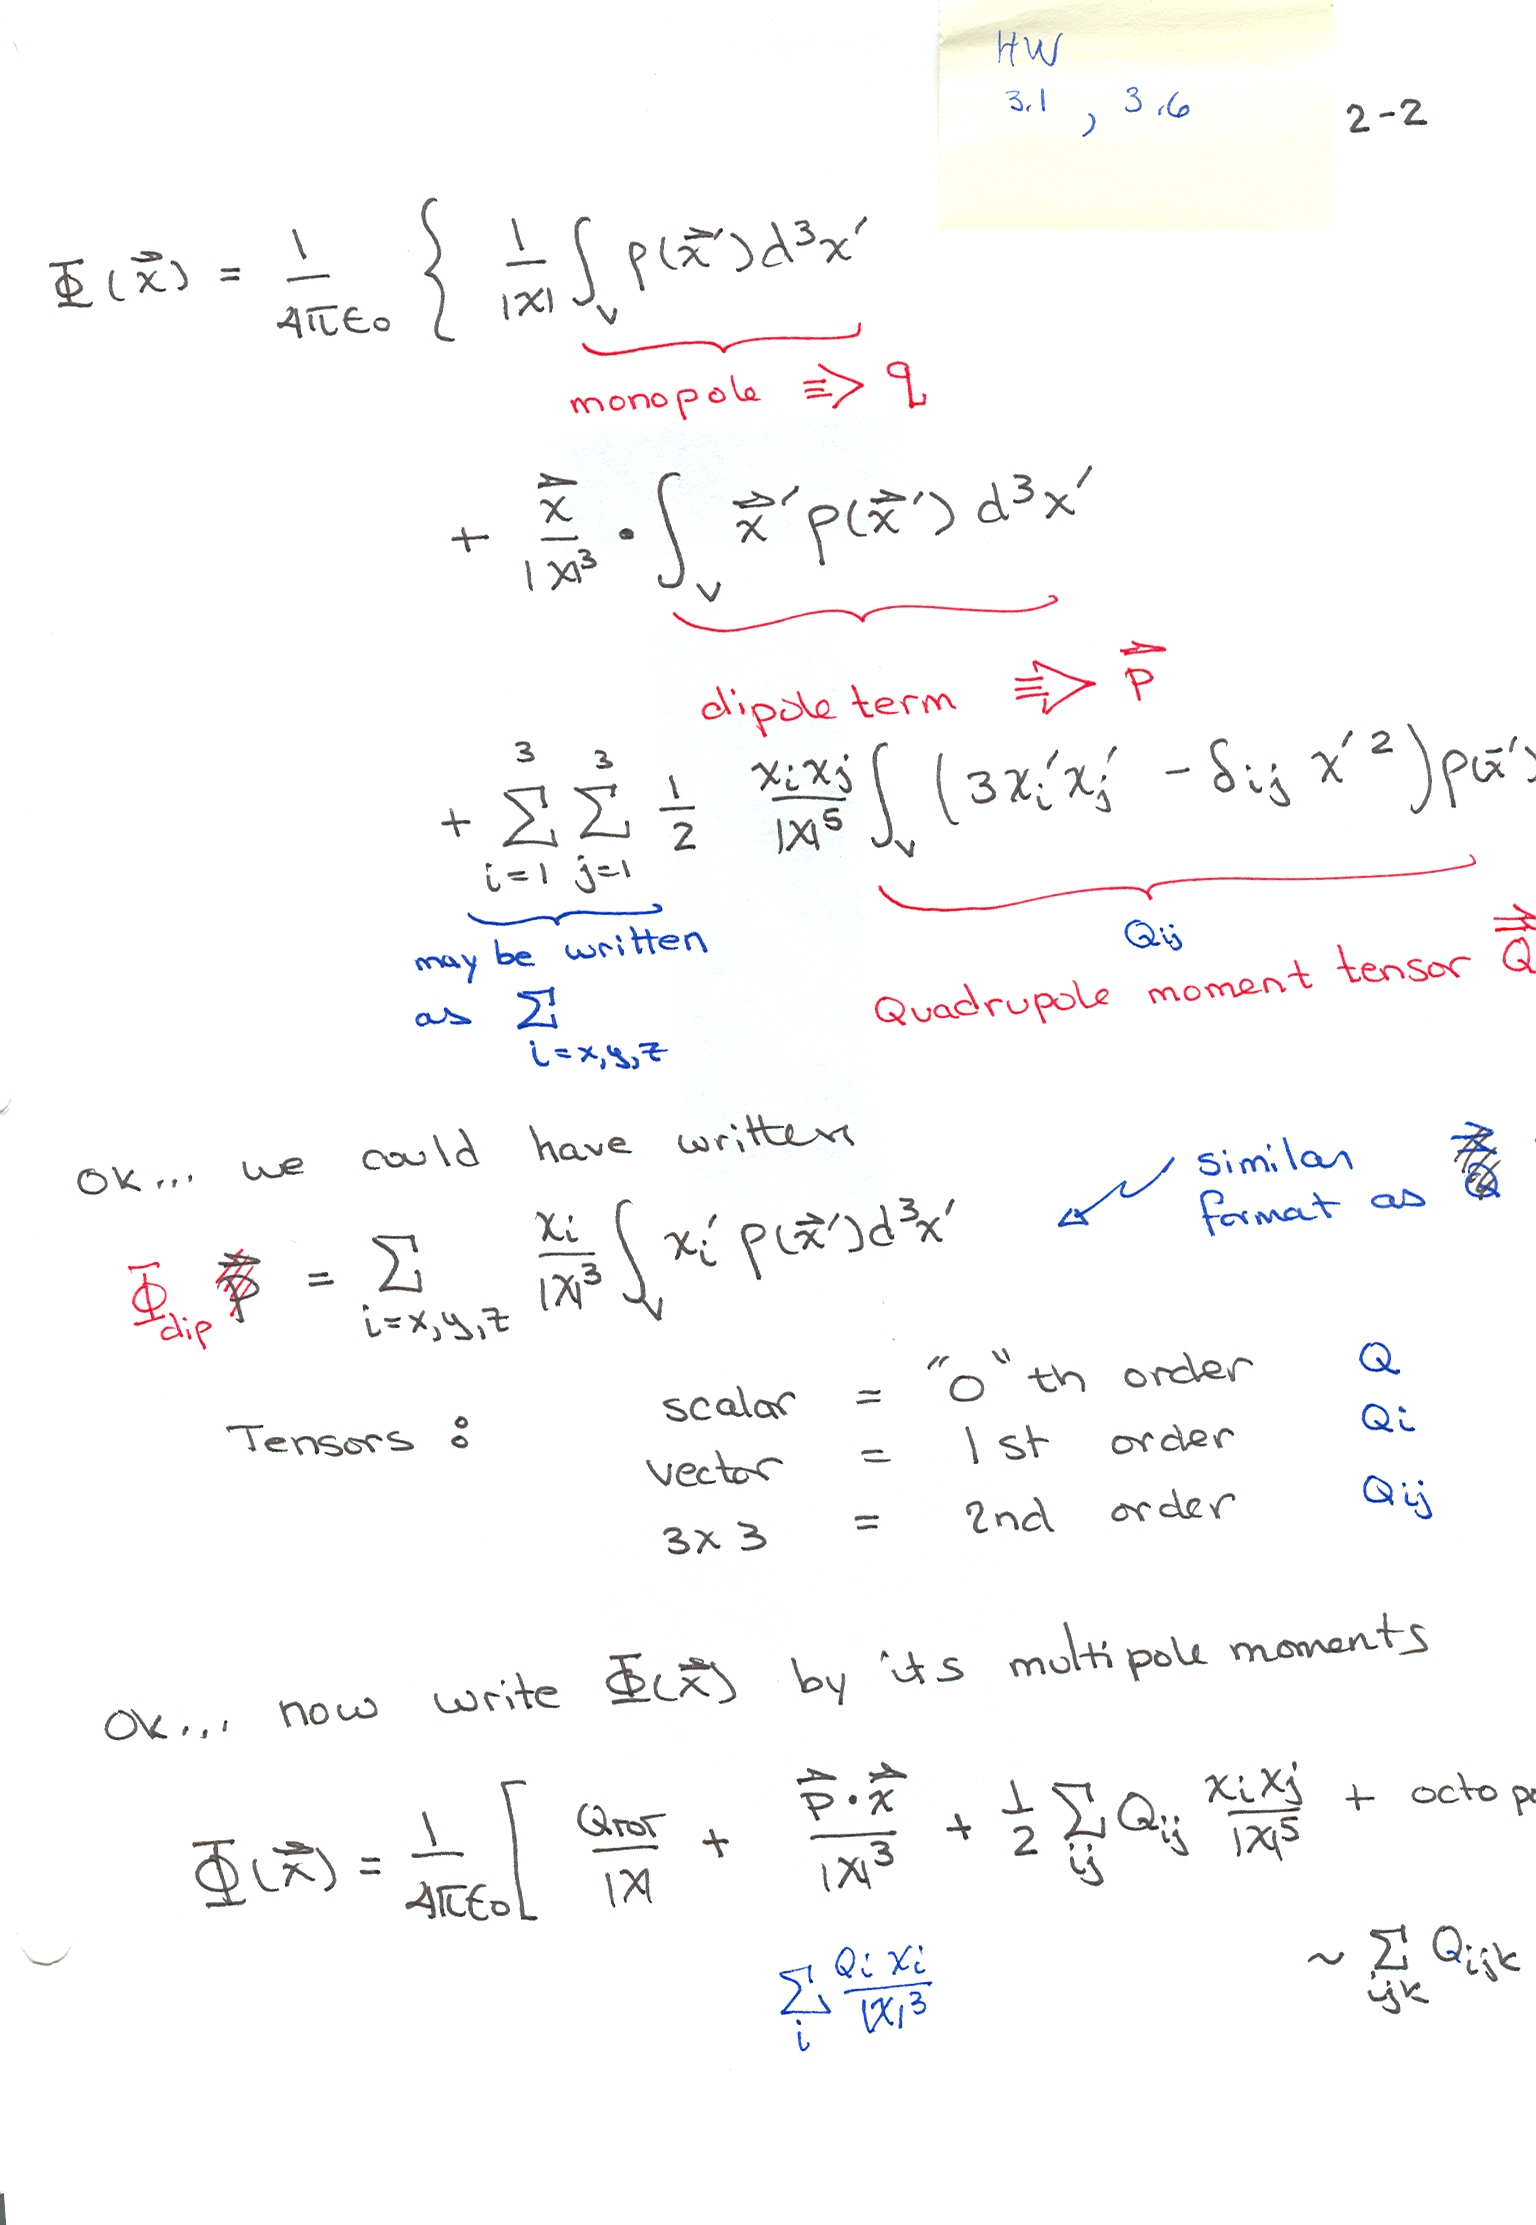 HW
3.1 , 3.6
2-2
Φ(x⃗) = 1/4πϵ₀ { 1/|x| ∫_V ρ(x⃗′)d³x′
monopole ⇒ q
+ x⃗/|x|³ · ∫_V x⃗′ρ(x⃗′) d³x′
dipole term ⇒ p⃗
+ Σ_{i=1}^{3} Σ_{j=1}^{3} 1/2 x_i x_j/|x|⁵ ∫_V (3x_i′x_j′ − δ_ij x′²)ρ(x⃗′)
may be written
as Σ
i=x,y,z
Qij
Quadrupole moment tensor Q⃗
OK... we could have written
similar
format as
Φ_dip = Σ_{i=x,y,z} x_i/|x|³ ∫_V x_i′ ρ(x⃗′)d³x′
Tensors :
scalar = "0"th order Q
vector = 1st order Qi
3x3 = 2nd order Qij
OK... now write Φ(x⃗) by its multipole moments
Φ(x⃗) = 1/4πϵ₀ [ Q_TOT/|x| + p⃗·x⃗/|x|³ + 1/2 Σ_ij Q_ij x_i x_j/|x|⁵ + octopo
Σ_i Q_i x_i/|x|³
~ Σ_ijk Q_ijk